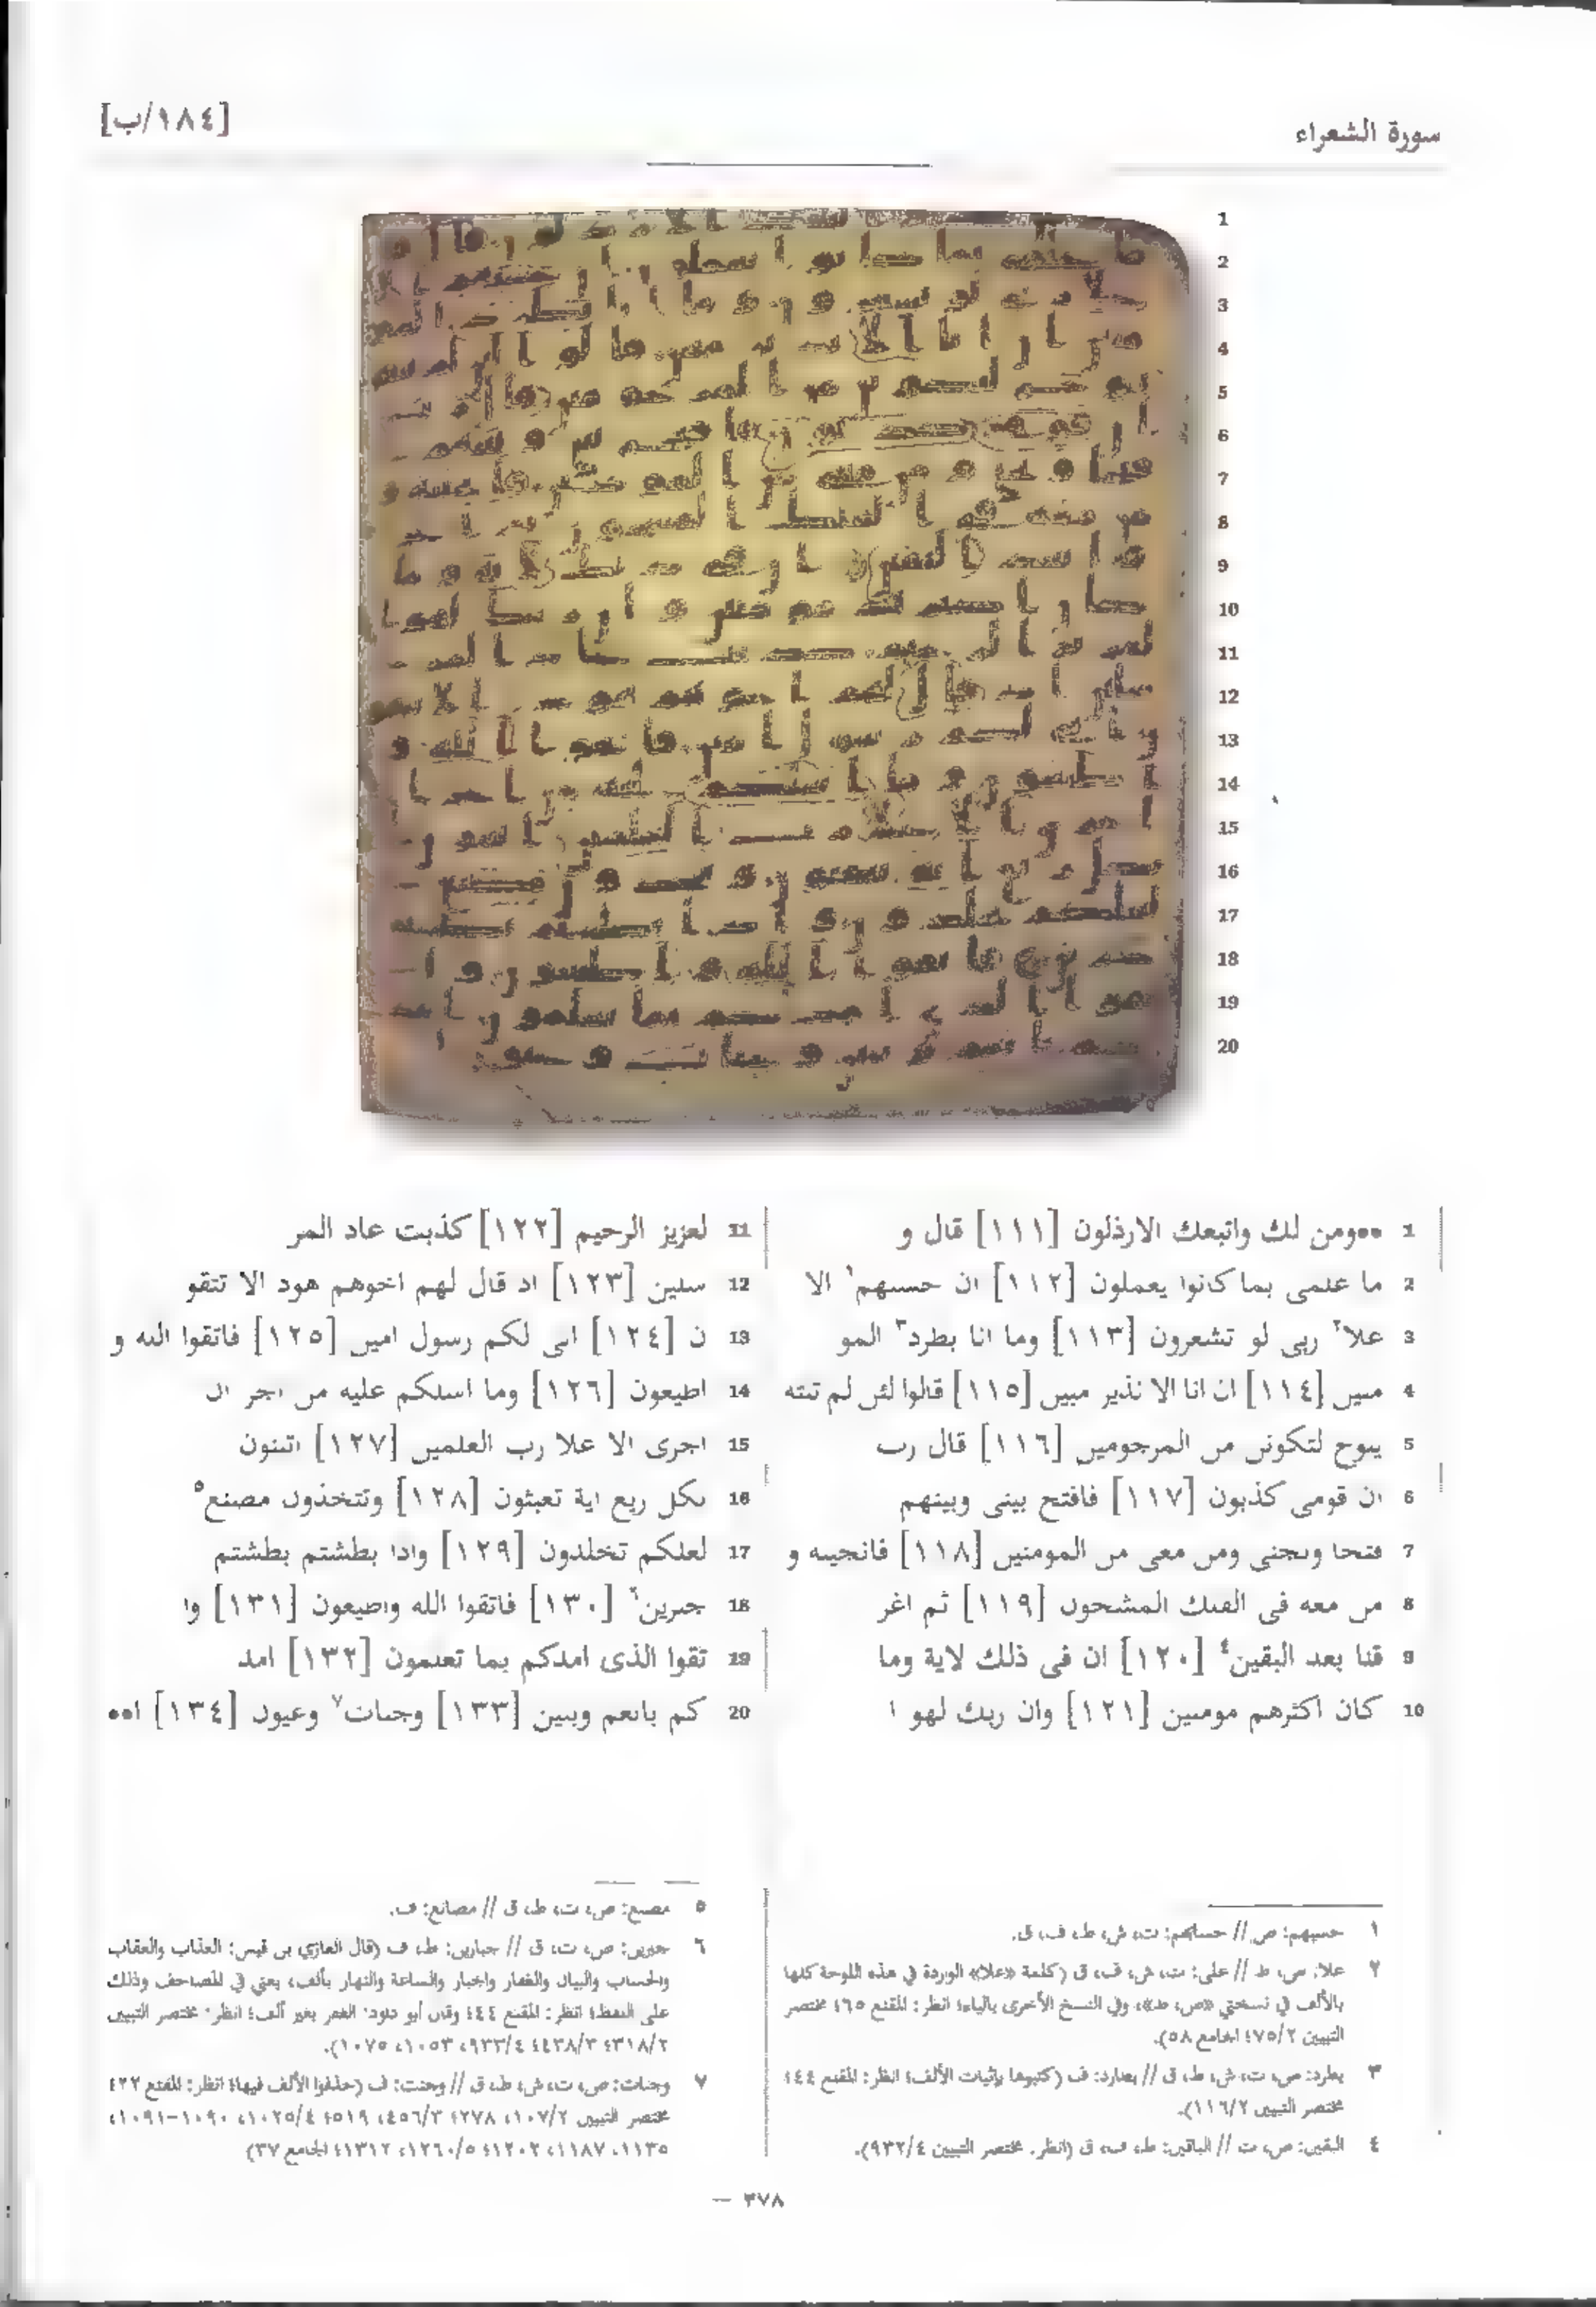 [١٨٤/ب]
سورة الشعراء
1 ••ومن لك واتبعك الارذلون [١١١] قال و
2 ما علمى بما كانوا يعملون [١١٢] ان حسبهم١ الا
3 علا٢ ربى لو تشعرون [١١٣] وما انا بطرد٣ المو
4 منين [١١٤] ان انا الا نذير مبين [١١٥] قالوا لئن لم تنته
5 ينوح لتكونن من المرجومين [١١٦] قال رب
6 ان قومى كذبون [١١٧] فافتح بينى وبينهم
7 فتحا ونجنى ومن معى من المومنين [١١٨] فانجينه و
8 من معه فى الفلك المشحون [١١٩] ثم اغر
9 قنا بعد البقين٤ [١٢٠] ان فى ذلك لاية وما
10 كان اكثرهم مومنين [١٢١] وان ربك لهو ا
11 لعزيز الرحيم [١٢٢] كذبت عاد المر
12 سلين [١٢٣] اذ قال لهم اخوهم هود الا تتقو
13 ن [١٢٤] انى لكم رسول امين [١٢٥] فاتقوا الله و
14 اطيعون [١٢٦] وما اسلكم عليه من اجر ان
15 اجرى الا علا رب العلمين [١٢٧] اتبنون
16 بكل ريع اية تعبثون [١٢٨] وتتخذون مصنع٥
17 لعلكم تخلدون [١٢٩] واذا بطشتم بطشتم
18 جبرين٦ [١٣٠] فاتقوا الله واطيعون [١٣١] وا
19 تقوا الذى امدكم بما تعلمون [١٣٢] امد
20 كم بانعم وبنين [١٣٣] وجنات٧ وعيون [١٣٤] ا••
١ حسبهم: ص // حسابهم: ت، ش، ط، ف، ق.
٢ علا: ص، ط // على: ت، ش، ف، ق (كلمة «علا» الواردة في هذه اللوحة كلها
بالألف في نسختي «ص، ط»، وفي النسخ الأخرى بالياء؛ انظر: المقنع ٦٥؛ مختصر
التبيين ٧٥/٢؛ الجامع ٥٨).
٣ بطرد: ص، ت، ش، ط، ق // بطارد: ف (كتبوها بإثبات الألف؛ انظر: المقنع ٤٤؛
مختصر التبيين ١١٦/٢).
٤ البقين: ص، ت // الباقين: ط، ف، ق (انظر: مختصر التبيين ٩٣٢/٤).
٥ مصنع: ص، ت، ط، ق // مصانع: ف.
٦ جبرين: ص، ت، ق // جبارين: ط، ف (قال الغازي بن قيس: العذاب والعقاب
والحساب والبيان والغفار والجبار والساعة والنهار بألف، يعني في المصاحف وذلك
على اللفظ؛ انظر: المقنع ٤٤؛ وقال أبو داود: الغفر بغير ألف؛ انظر: مختصر التبيين
٣١٨/٢؛ ٤٣٨/٣؛ ٩٣٣/٤، ١٠٥٣، ١٠٧٥).
٧ وجنات: ص، ت، ش، ط، ق // وجنت: ف (حذفوا الألف فيها؛ انظر: المقنع ٢٢؛
مختصر التبيين ١٠٧/٢، ٢٧٨؛ ٤٥٦/٣، ٥١٩؛ ١٠٢٥/٤، ١٠٩٠-١٠٩١،
١١٣٥، ١١٨٧، ١٢٠٢؛ ١٢٦٠/٥، ١٣١٢؛ الجامع ٣٧)
٣٧٨ —